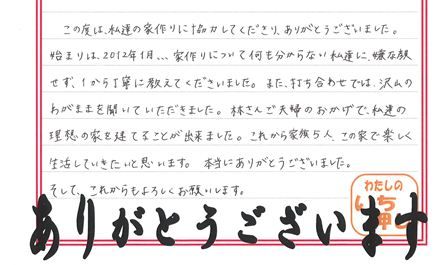 この度は、私達の家作りに協力してくださり、ありがとうございました。
始まりは、2012年1月、、、家作りについて何も分からない私達に、嫌な顔
せず、1から丁寧に教えてくださいました。また、打ち合わせでは、沢山の
わがままを聞いていただきました。林さんご夫婦のおかげで、私達の
理想の家を建てることが出来ました。これから家族5人、この家で楽しく
生活していきたいと思います。本当にありがとうございました。
そして、これからもよろしくお願いします。
わたしの
いち
押し
ありがとうございます